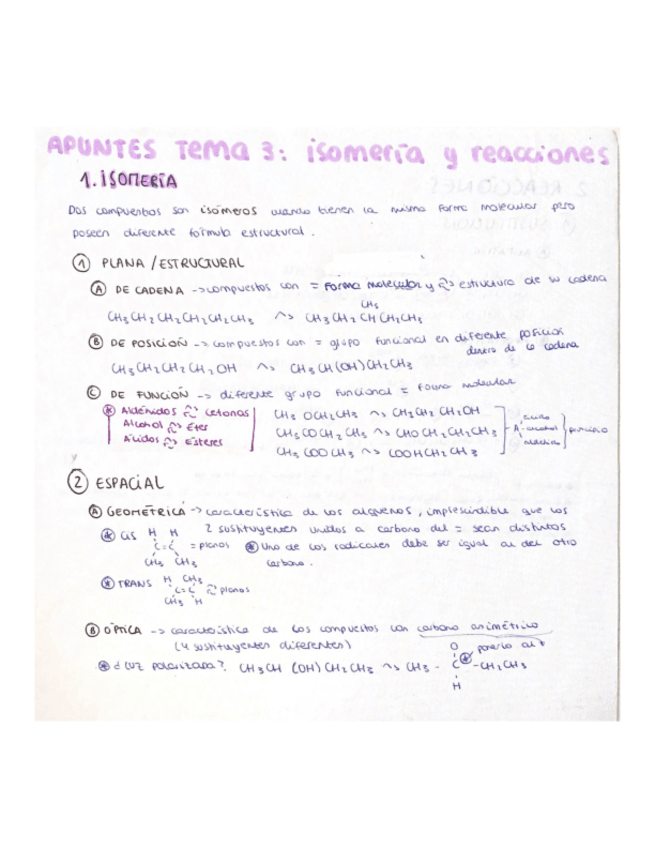 APUNTES Tema 3: isomería y reacciones
1. ISOMERÍA
Dos compuestos son isómeros cuando tienen la misma forma molecular pero
poseen diferente fórmula estructural.
① PLANA / ESTRUCTURAL
Ⓐ DE CADENA -> compuestos con = forma molecular y estructura de su cadena
CH3
CH3 CH2 CH2 CH2 CH2 CH3 ~> CH3 CH2 CH CH2 CH3
Ⓑ DE POSICIÓN -> compuestos con = grupo funcional en diferente posición
dentro de la cadena
CH3 CH2 CH2 CH2 OH ~> CH3 CH (OH) CH2 CH3
Ⓒ DE FUNCIÓN -> diferente grupo funcional = forma molecular
Aldehídos ~> cetonas
Alcohol ~> Éter
Ácidos ~> Ésteres
CH3 OCH2 CH3 ~> CH3 CH2 CH2 OH
CH3 CO CH2 CH3 ~> CHO CH2 CH2 CH3
CH3 COO CH3 ~> COOH CH2 CH3
A
ácido
alcohol
principio
② ESPACIAL
Ⓐ GEOMÉTRICA -> característica de los alquenos, imprescindible que los
2 sustituyentes unidos a carbono del = sean distintos
CIS
H H
C = C
CH3 CH3
= planos
Uno de los radicales debe ser igual al del otro
carbono.
TRANS
H CH3
C = C
CH3 H
planos
Ⓑ ÓPTICA -> característica de los compuestos con carbono asimétrico
(4 sustituyentes diferentes)
ponerlo
¿luz polarizada? CH3 CH (OH) CH2 CH3 ~> CH3 - C - CH2 CH3
O
H